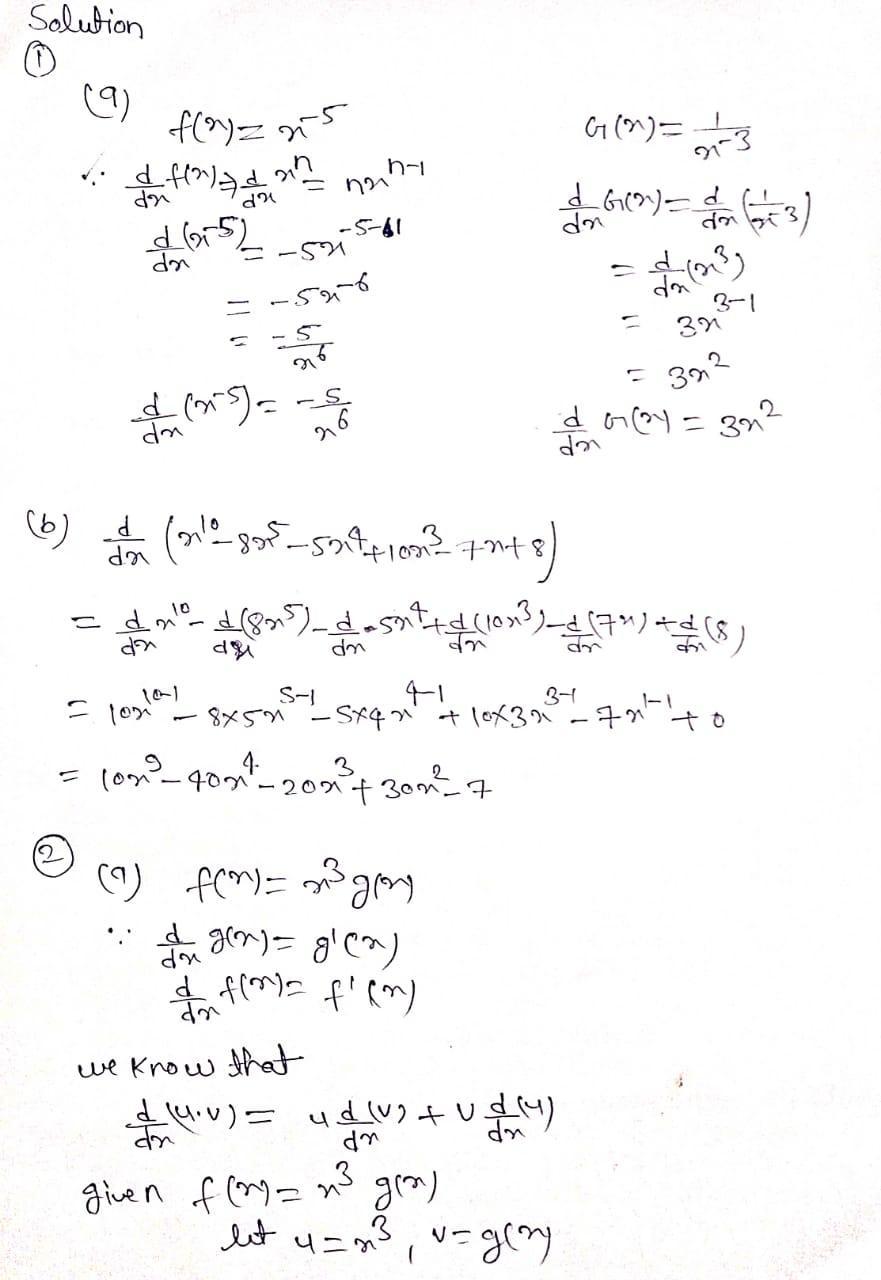 Solution
①
(a)
f(x) = x^-5
∵ d/dx f(x) ⇒ d/dx x^n = nx^n-1
d/dx (x^-5) = -5x^-5-1
= -5x^-6
= -5/x^6
d/dx (x^-5) = -5/x^6
G(x) = 1/x^-3
d/dx G(x) = d/dx (1/x^-3)
= d/dx (x^3)
= 3x^3-1
= 3x^2
d/dx G(x) = 3x^2
(b) d/dx (x^10 - 8x^5 - 5x^4 + 10x^3 - 7x + 8)
= d/dx x^10 - d/dx (8x^5) - d/dx 5x^4 + d/dx (10x^3) - d/dx (7x) + d/dx (8)
= 10x^10-1 - 8×5x^5-1 - 5×4x^4-1 + 10×3x^3-1 - 7x^1-1 + 0
= 10x^9 - 40x^4 - 20x^3 + 30x^2 - 7
②
(a) f(x) = x^3 g(x)
∵ d/dx g(x) = g'(x)
d/dx f(x) = f'(x)
we know that
d/dx (u.v) = u d/dx (v) + v d/dx (u)
given f(x) = x^3 g(x)
let u = x^3, v = g(x)